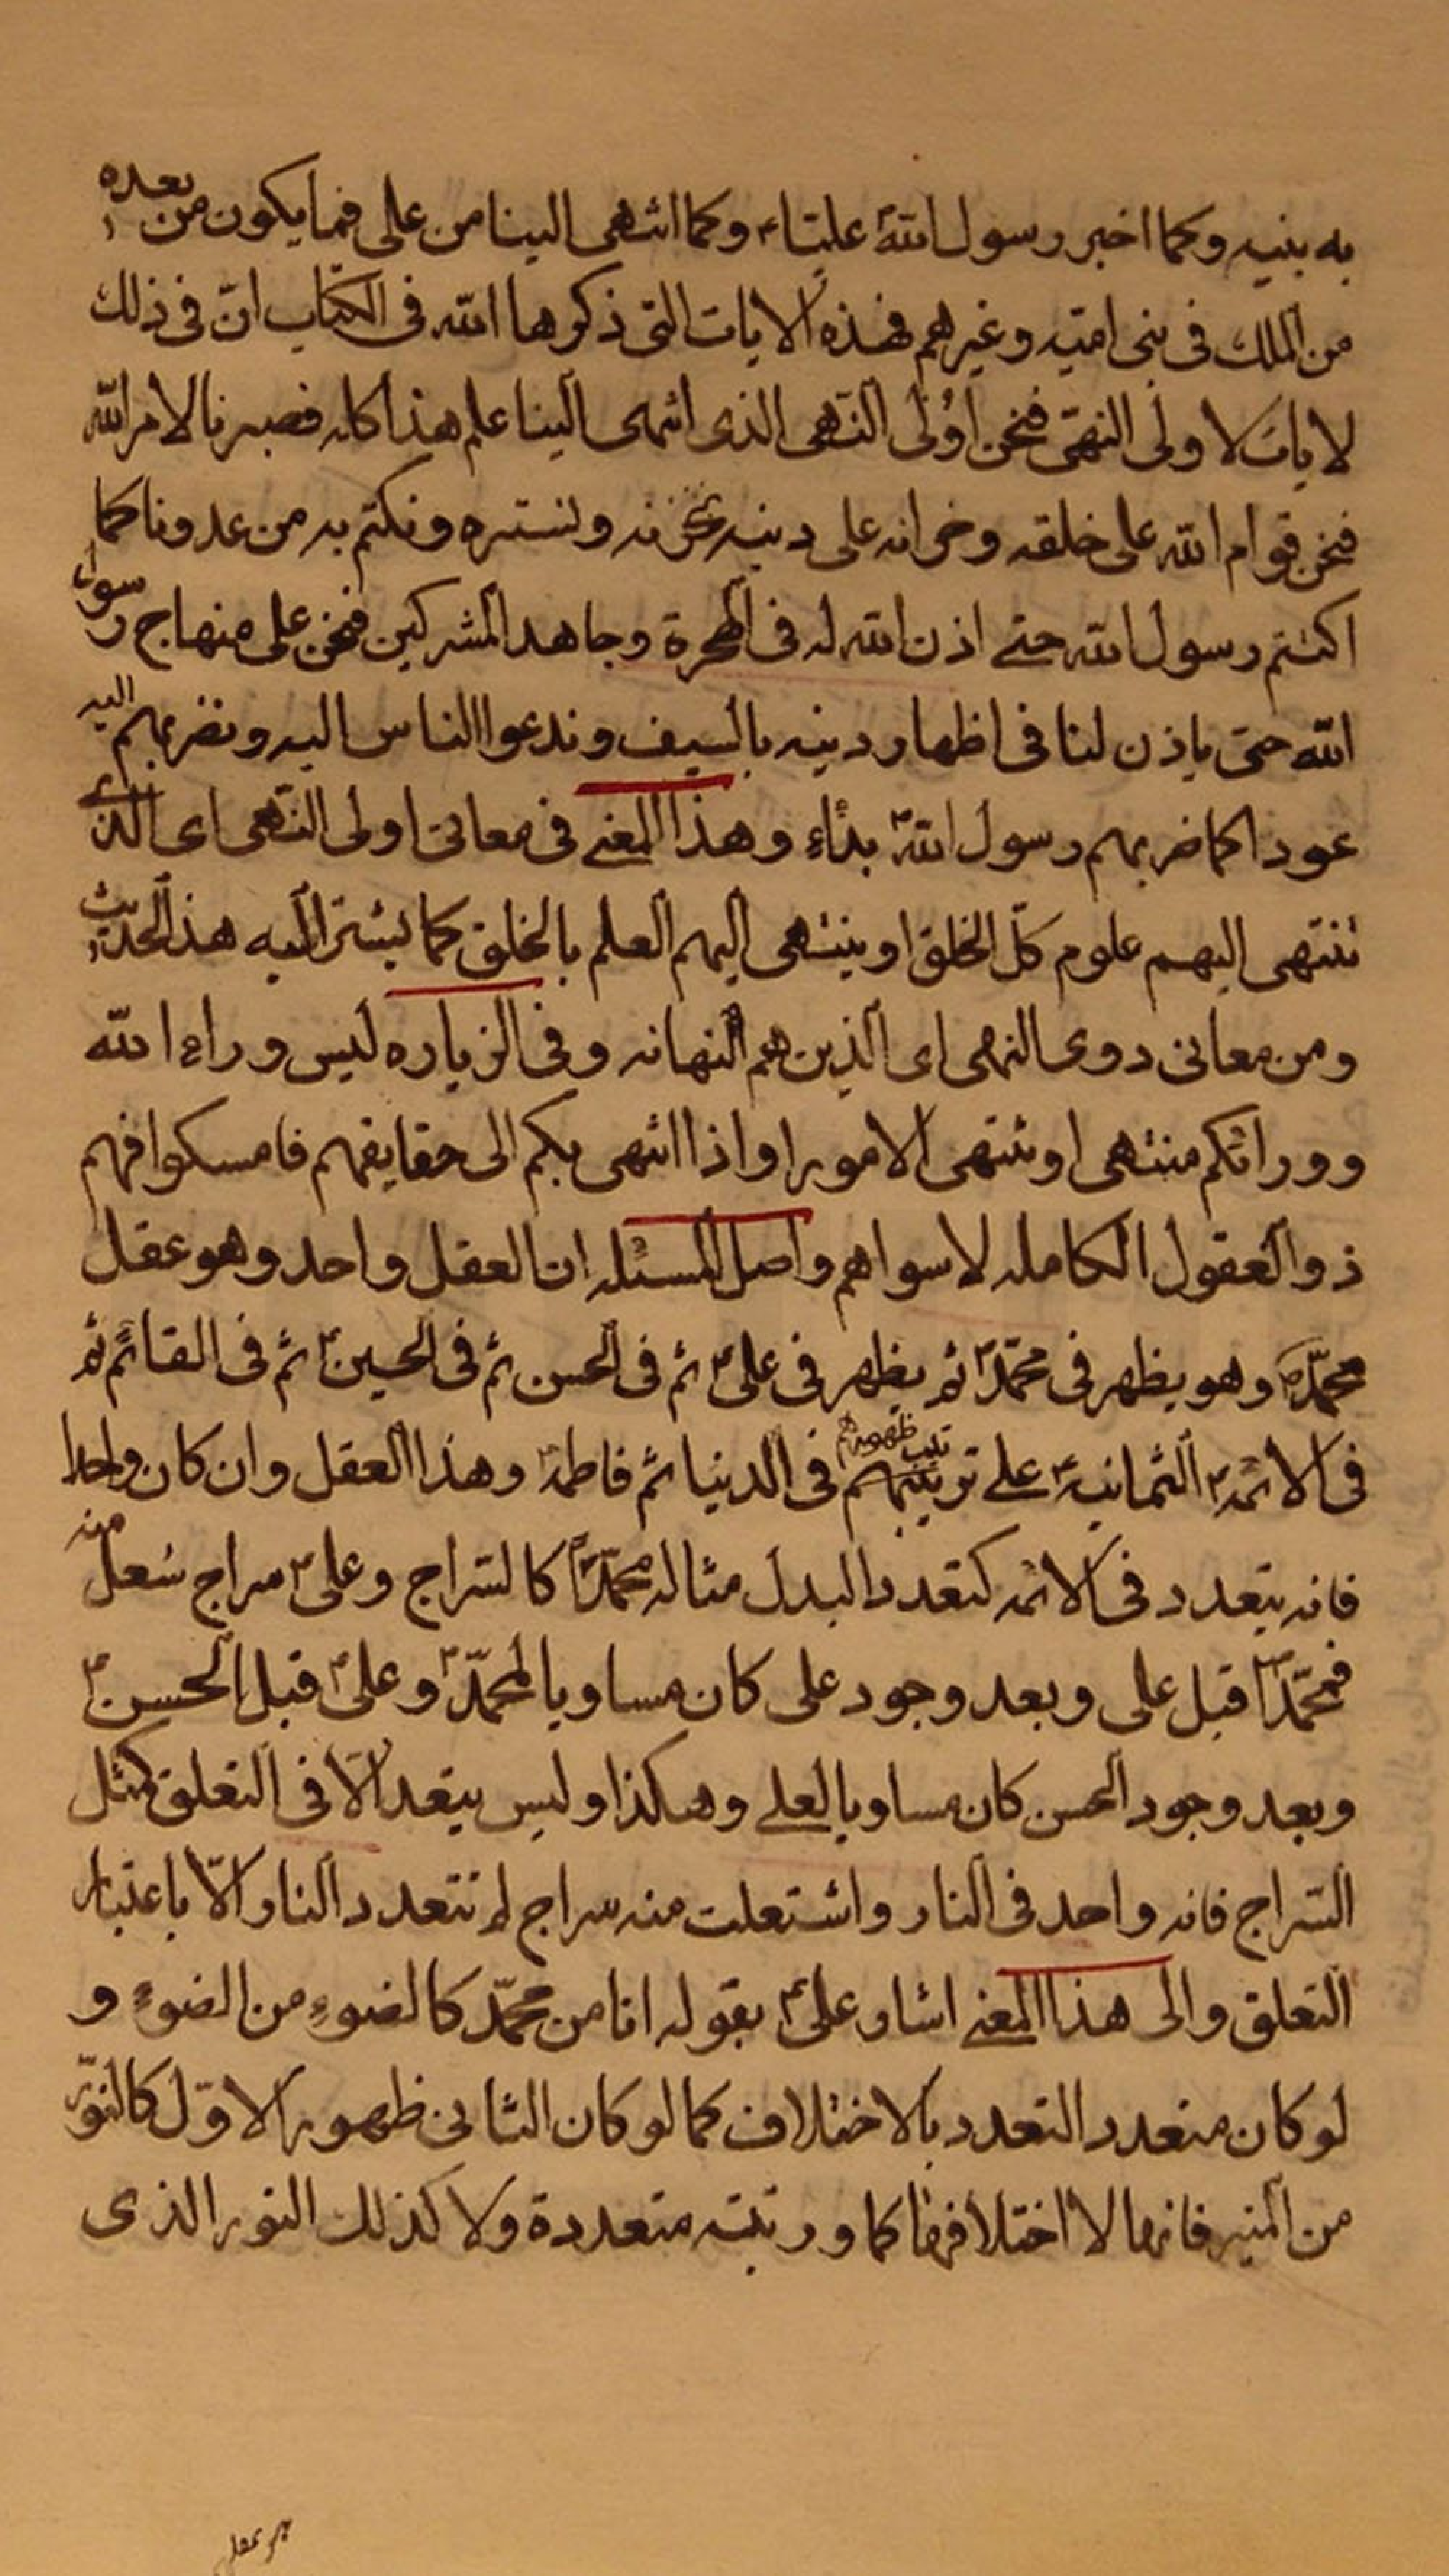 به بنيه وكما اخبر رسول الله عليّاء وكما انتهى الينا من على فيما يكون من بعده
من الملك فى بنى اميّه وغيرهم فهذه الايات التى ذكرها الله فى الكتاب انّ فى ذلك
لايات لاولى النهى فنحن اولى النّهى الذى انتهى الينا علم هذا كله فصبرنا لامر الله
فنحن قوام الله على خلقه وخزانه على دينه نخزنه ونستره ونكتم به من عدونا كما
اكتتم رسول الله حتى اذن الله له فى الهجرة وجاهد المشركين فنحن على منهاج رسول
الله حتى ياذن لنا فى اظهار دينه بالسيف وندعوا الناس اليه ونضربهم اليه
عودا كما ضربهم رسول الله بدًاء وهذا المعنى فى معانى اولى النّهى اى الذى
تنتهى اليهم علوم كلّ الخلق او ينتهى اليهم العلم بالخلق كما يشير اليه هذا الحديث
ومن معانى ذوى النهى اى الّذين هم النهاية وفى الزياره ليس وراء الله
وورائكم منتهى او تنتهى الامور او اذا انتهى بكم الى حقايقهم فامسكوا فهم
ذو العقول الكامله لا سواهم واصل المسئله ان العقل واحد وهو عقل
محمّد وهو يظهر فى محمّد ثم يظهر فى على ثم فى الحسن ثم فى الحسين ثم فى القائم ثم
فى الائمه الثمانيه على ترتيب ظهورهم فى الدنيا ثم فاطمه وهذا العقل وان كان واحدا
فانه يتعدد فى الائمه كتعدد البدل مثاله محمّد كالسّراج وعلى سراج شعل منه
فمحمّد قبل على وبعد وجود على كان مساويا لمحمّد وعلى قبل الحسن
وبعد وجود الحسن كان مساويا لعلى وهكذا وليس يتعد الّا فى التعلق كمثل
السّراج فانه واحد فى النار واشتعلت منه سراج لم تتعدد النار الّا باعتبار
التعلق والى هذا المعنى اشار على بقوله انا من محمّد كالضوء من الضوء و
لو كان متعدد التعدد بالاختلاف كما لو كان الثانى ظهور الاوّل كالنّور
من المنير فانهما لا اختلافهما كما ورتبته متعددة ولا كذلك النور الذى